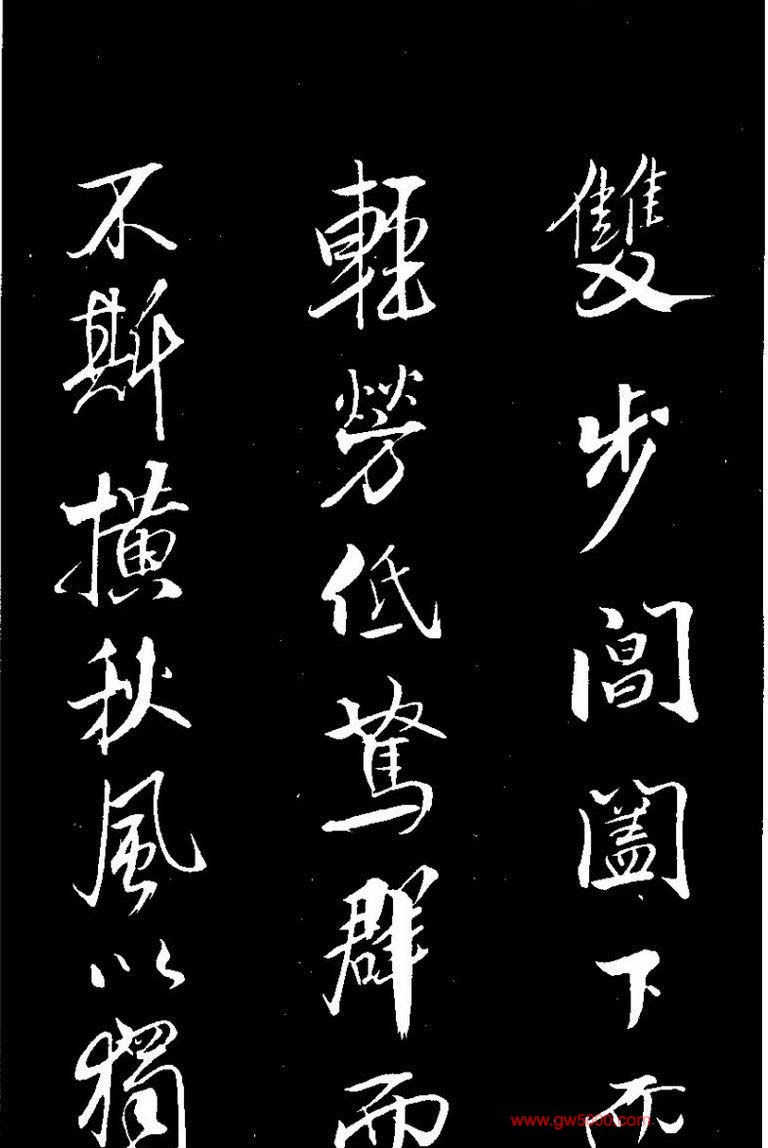 雙步閶闔下而
輕勞低駑群而
不斯橫秋風以獨
www.gw5000.com